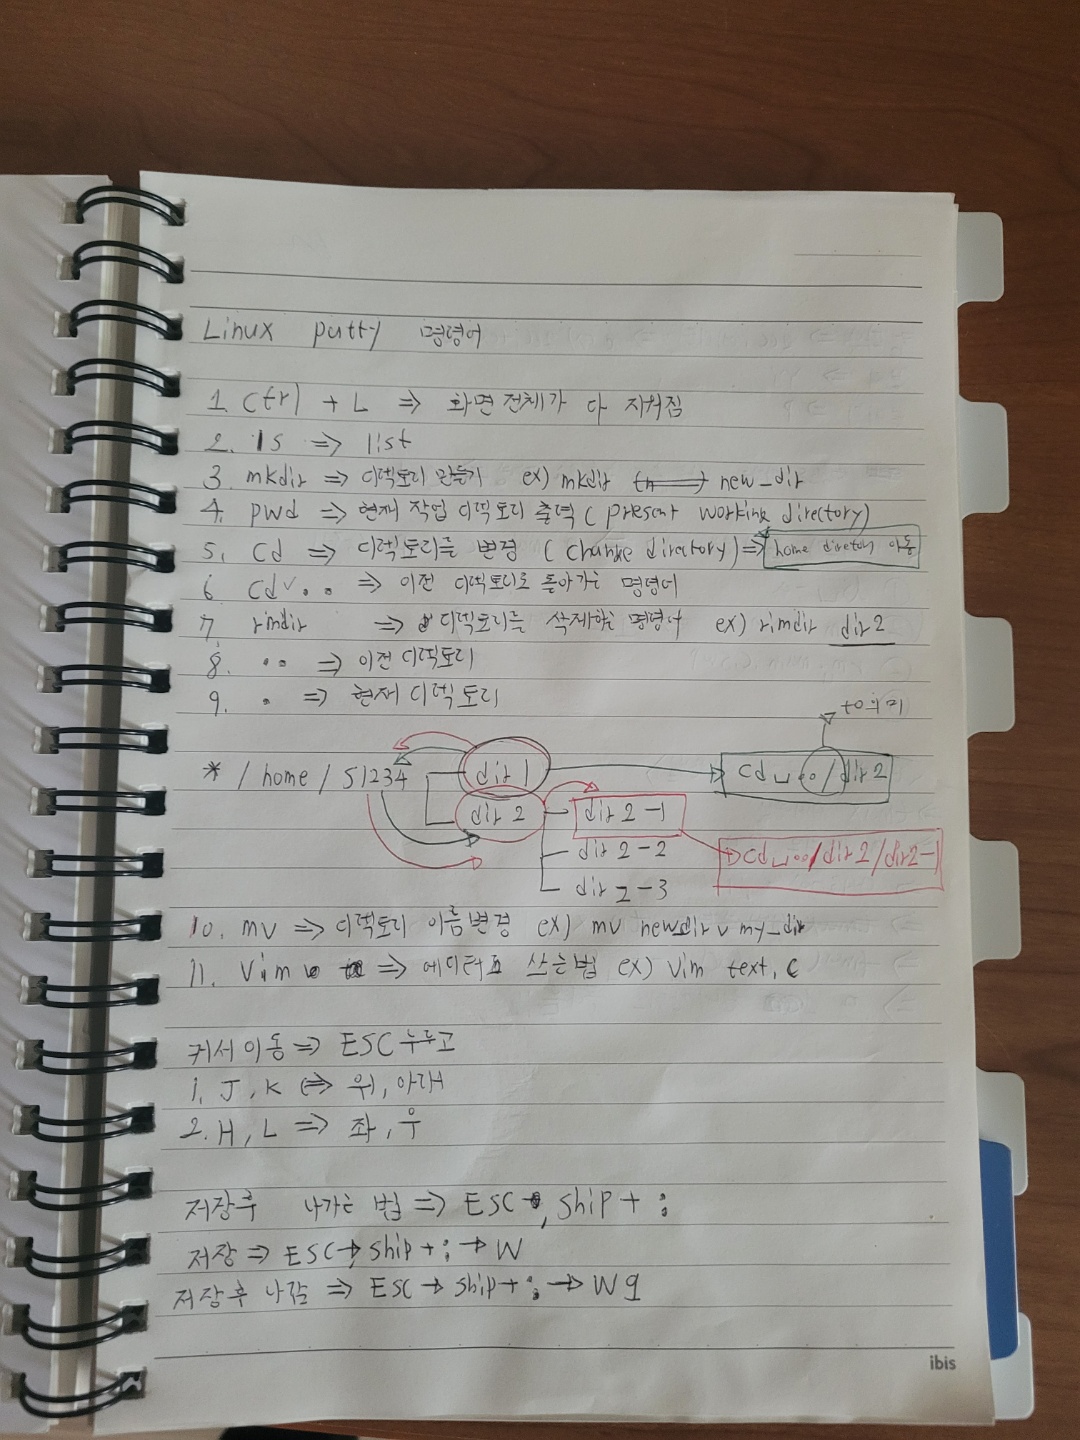 Linux putty 명령어
1. Ctrl + L ⇒ 화면 전체가 다 지워짐
2. ls ⇒ list
3. mkdir ⇒ 디렉토리 만들기 ex) mkdir new_dir
4. pwd ⇒ 현재 작업 디렉토리 출력 ( present working directory)
5. cd ⇒ 디렉토리를 변경 ( change directory) ⇒ home diretory 이동
6 cd∨.. ⇒ 이전 디렉토리로 돌아가는 명령어
7 rmdir ⇒ 디렉토리를 삭제하는 명령어 ex) rimdir dir2
8. .. ⇒ 이전 디렉토리
9. . ⇒ 현재 디렉토리
to의미
* / home / 51234 dir 1 cd␣../dir2
dir 2 dir 2-1
dir 2-2 cd␣../dir2/dir2-1
dir 2-3
10. mv ⇒ 디렉토리 이름변경 ex) mv newdir ∨ my_dir
11. Vim ⇒ 에디터로 쓰는법 ex) Vim text.c
커서이동 ⇒ ESC 누루고
1. J, K ⇒ 위, 아래
2. H, L ⇒ 좌, 우
저장후 나가는 법 ⇒ ESC, ship + :
저장 ⇒ ESC → ship + : → W
저장후 나감 ⇒ ESC → ship + : → W q
ibis